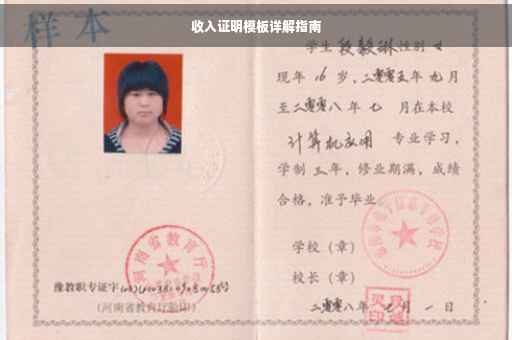 收入证明模板详解指南
样本
学生 段毅琳 性别 女
现年 16 岁,二零零五年 九 月
至二零零八年 七 月在本校
计算机应用 专业学习,
学制 三 年,修业期满,成绩
合格,准予毕业
学校(章)
校长(章)
二零零八年 七 月 一 日
河南省教育厅
豫教职专证字
(河南省教育厅验印)